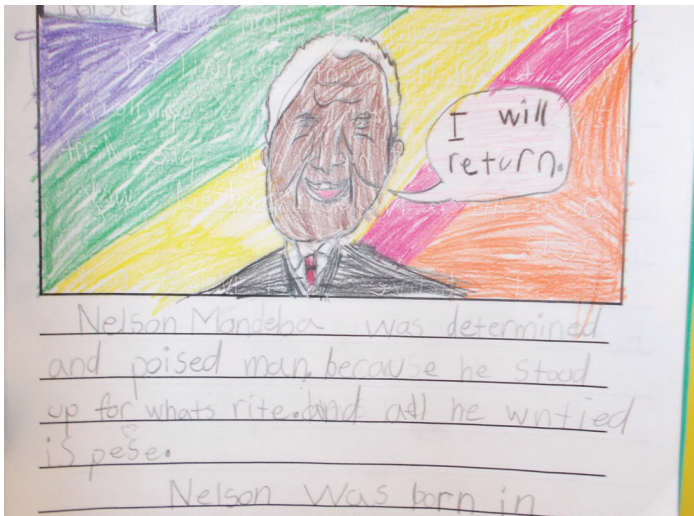 raise
I will
return.
Nelson Mandeba was determined
and poised man, because he stood
up for whats rite. and all he wntied
is pese.
Nelson was born in